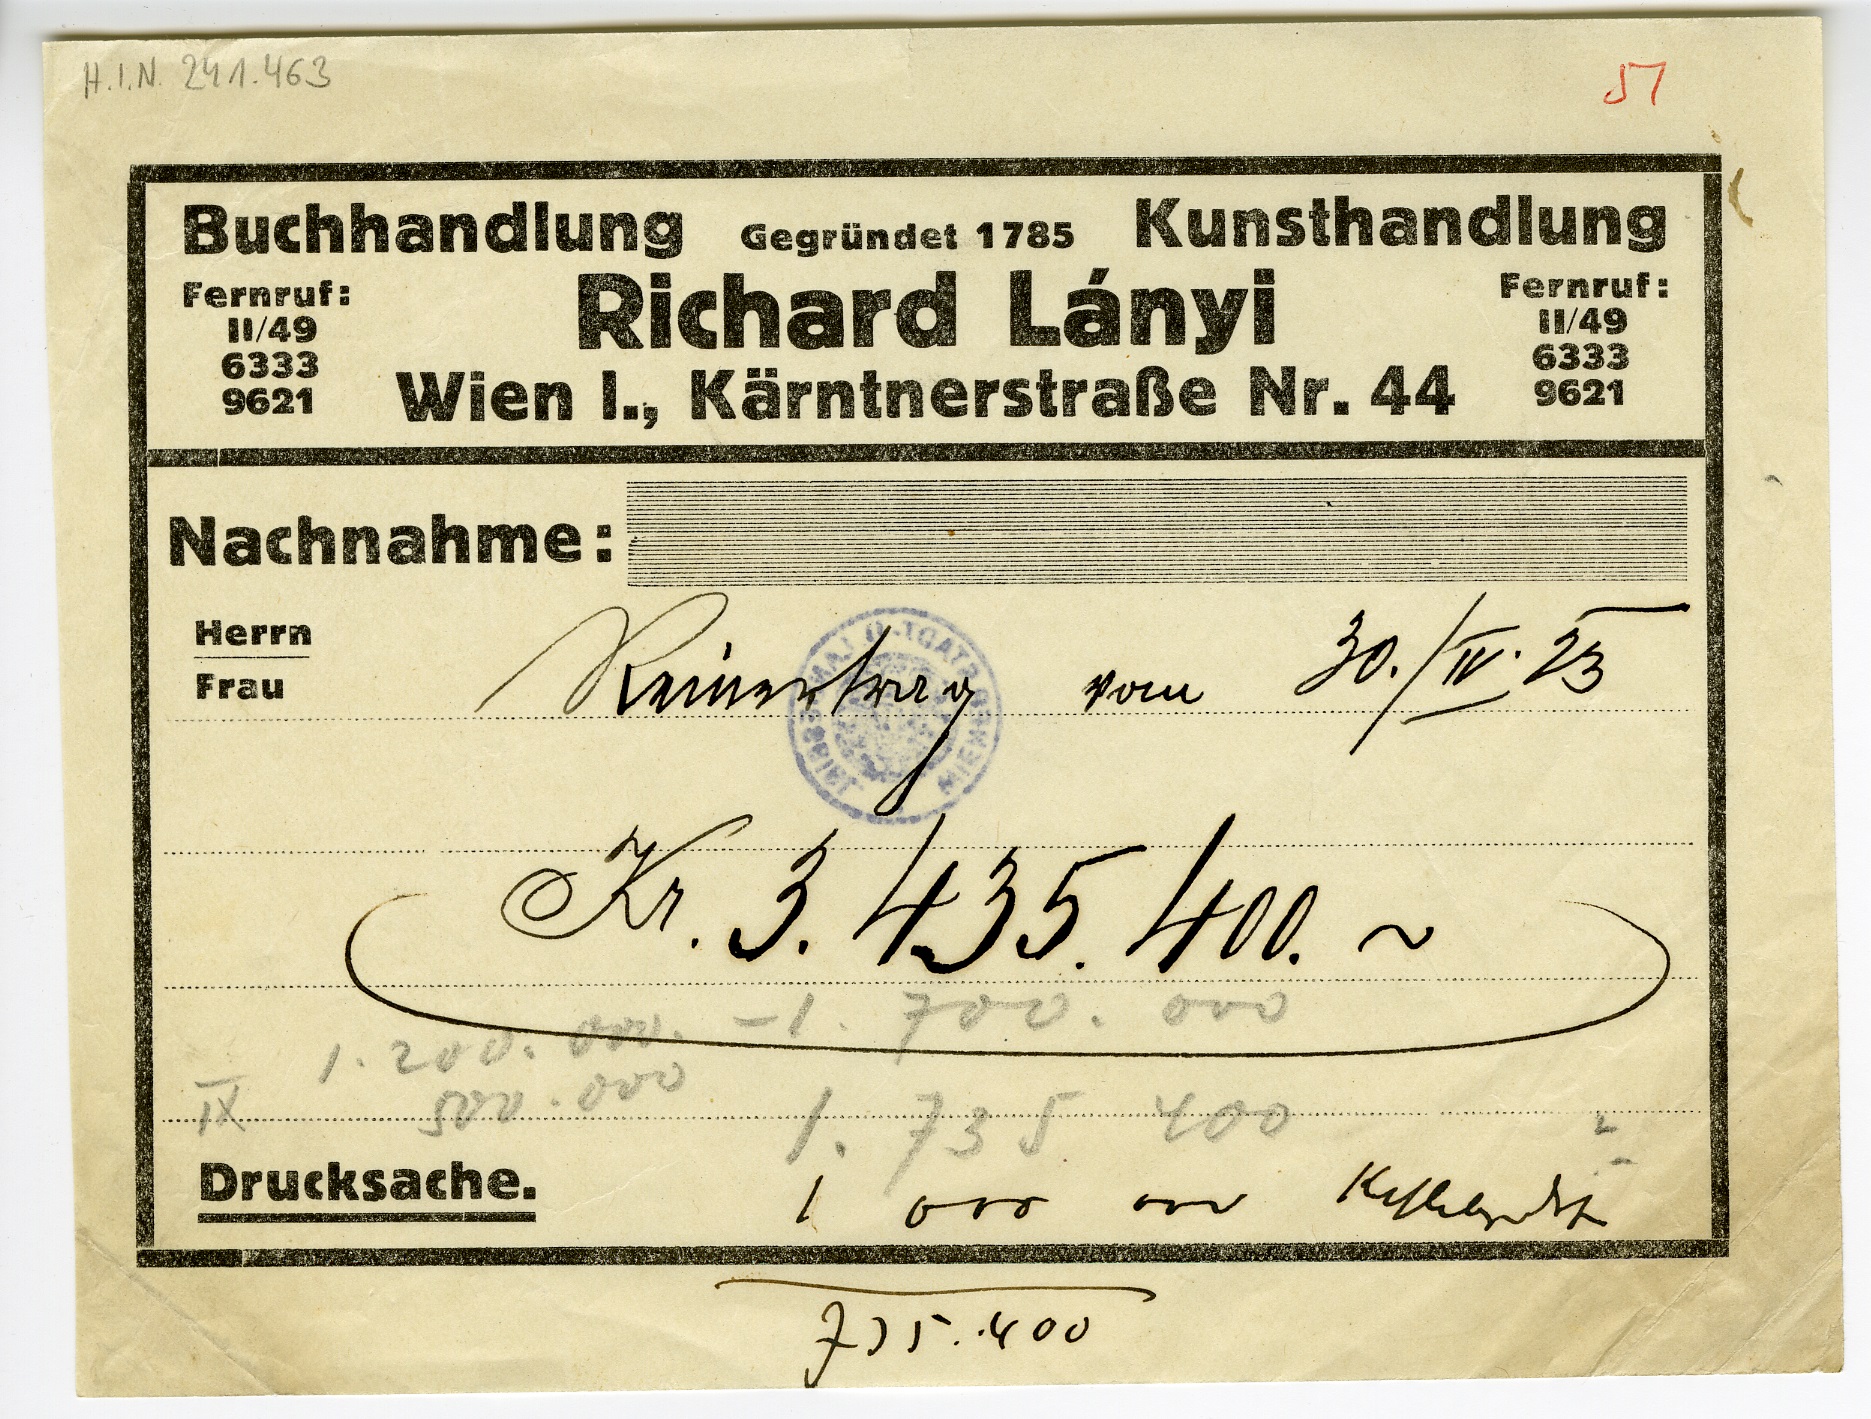 H.I.N. 241.463
51
Buchhandlung Gegründet 1785 Kunsthandlung
Fernruf: Richard Lányi Fernruf:
II/49 II/49
6333 6333
9621 Wien I., Kärntnerstraße Nr. 44 9621
Nachnahme:
Herrn
Frau
Reinertrag vom 30./IV. 23
Kr. 3.435.400.~
-1.700.000
1.200.000.
IX 500.000
1.735 400
Drucksache.
1 000 000
735.400